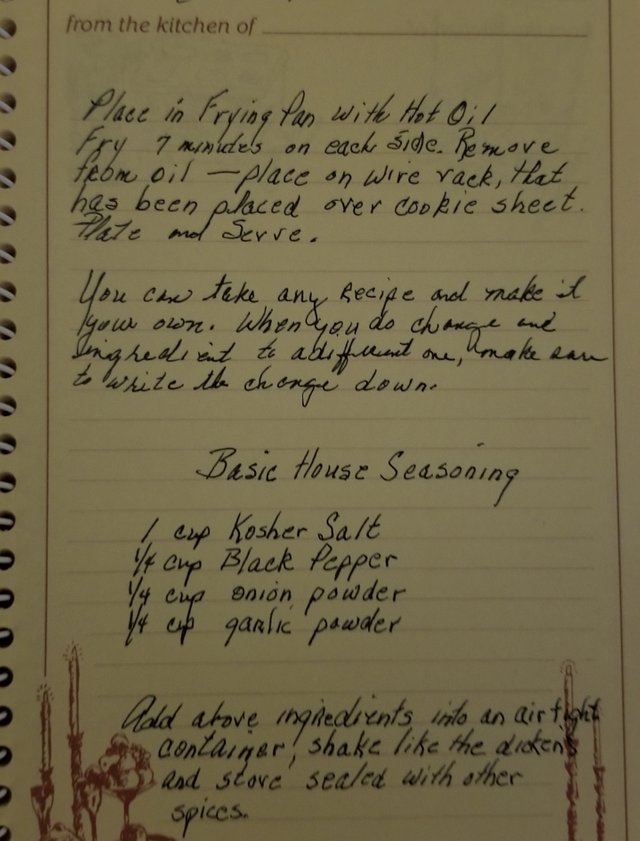 from the kitchen of
Place in Frying Pan with Hot Oil
Fry 7 minutes on each side. Remove
from oil — place on wire rack, that
has been placed over cookie sheet.
Plate and Serve.
You can take any Recipe and make it
your own. When you do change one
ingredient to a different one, make sure
to write the change down.
Basic House Seasoning
1 cup Kosher Salt
1/4 cup Black Pepper
1/4 cup onion powder
1/4 cup garlic powder
Add above ingredients into an air tight
container, shake like the dickens
and store sealed with other
spices.